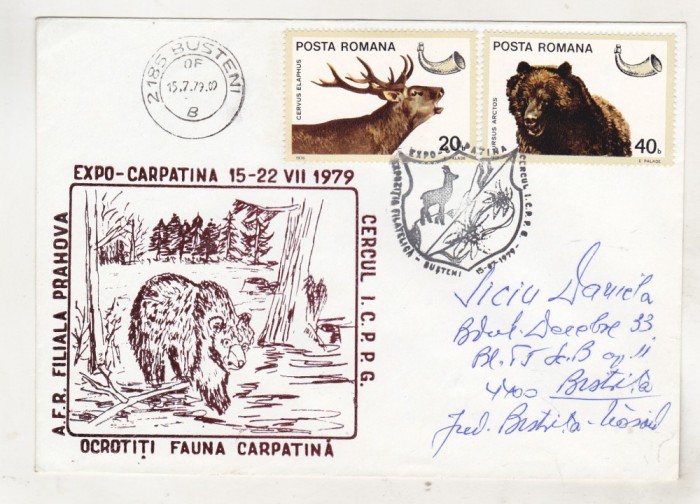 2185 BUSTENI
OF
15.7.79.
B
POSTA ROMANA
CERVUS ELAPHUS
20
E. PALADE
1976
POSTA ROMANA
URSUS ARCTOS
40b
E. PALADE
EXPO-CARPATINA
EXPOZITIA FILATELICA
CERCUL I.C.P.P.G.
- BUSTENI 15-07-1979 -
EXPO-CARPATINA 15-22 VII 1979
A.F.R. FILIALA PRAHOVA
CERCUL I.C.P.P.G.
OCROTIȚI FAUNA CARPATINĂ
Viciu Daniela
Bdul. Decebre 33
Bl. sc. B ap 11
4400 Bistrița
Jud. Bistrița-Năsăud